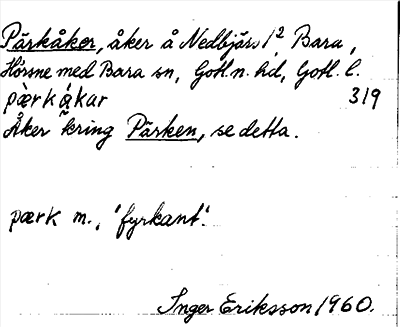 Pärkåker, åker å Nedbjärs 1², Bara,
Hörsne med Bara sn, Gotl. n. hd, Gotl. l.
pæ̀rkå̀kar 319
Åker kring Pärken, se detta.
pærk m., 'fyrkant'.
Inger Eriksson 1960.